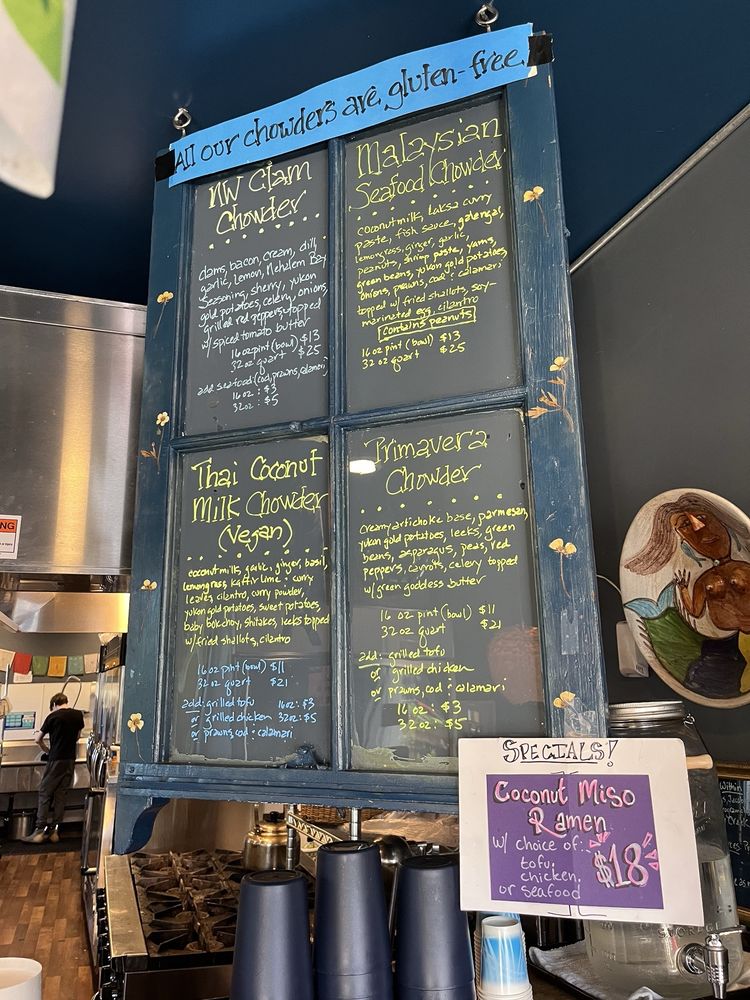 All our chowders are gluten-free
NW Clam
Chowder
clams, bacon, cream, dill,
garlic, lemon, Nehalem Bay
Seasoning, sherry, yukon
gold potatoes, celery, onions,
grilled red peppers, topped
w/ spiced tomato butter
16 oz pint (bowl) $13
32 oz quart $25
add seafood: (cod, prawns, calamari)
16 oz : $3
32 oz : $5
Malaysian
Seafood Chowder
coconut milk, laksa curry
paste, fish sauce, galengal,
lemongrass, ginger, garlic,
peanuts, shrimp paste, yams,
green beans, yukon gold potatoes,
onions, prawns, cod & calamari
topped w/ fried shallots, soy-
marinated egg, cilantro
contains peanuts
16 oz pint (bowl) $13
32 oz quart $25
Thai Coconut
Milk Chowder
(Vegan)
coconut milk, garlic, ginger, basil,
lemongrass, kaffir lime & curry
leaves, cilantro, curry powder,
yukon gold potatoes, sweet potatoes,
baby bok choy, shitakes, leeks topped
w/ fried shallots, cilantro
16 oz pint (bowl) $11
32 oz quart $21
add: grilled tofu 16oz: $3
or grilled chicken 32oz: $5
or prawns, cod & calamari
Primavera
Chowder
creamy artichoke base, parmesan,
yukon gold potatoes, leeks, green
beans, asparagus, peas, red
peppers, carrots, celery topped
w/ green goddess butter
16 oz pint (bowl) $11
32 oz quart $21
add: grilled tofu
or grilled chicken
or prawns, cod & calamari
16 oz : $3
32 oz : $5
SPECIALS!
Coconut Miso
Ramen
w/ choice of:
tofu,
chicken,
or seafood
$18